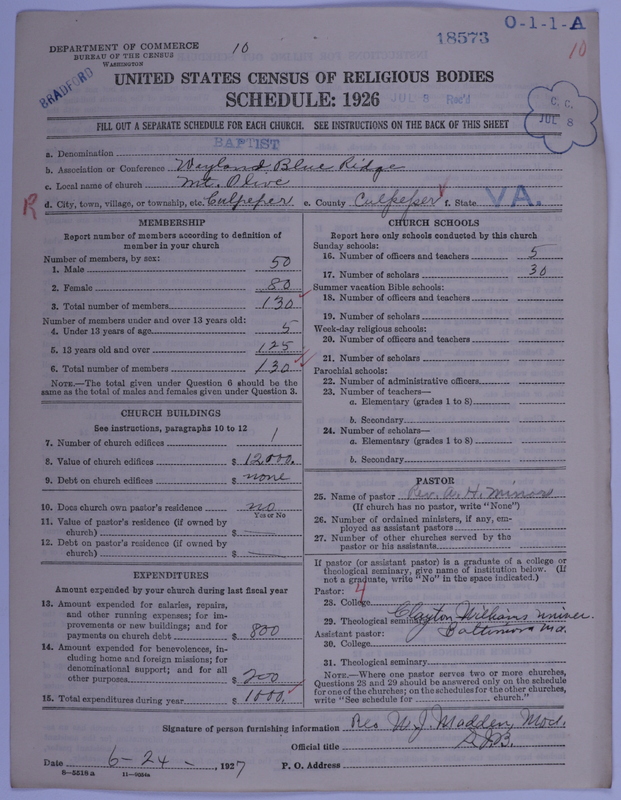 O-1-1-A
18573
10
10
DEPARTMENT OF COMMERCE
BUREAU OF THE CENSUS
WASHINGTON
BRADFORD
UNITED STATES CENSUS OF RELIGIOUS BODIES
SCHEDULE: 1926
JUL 8 Rec'd
C. C.
JUL 8
FILL OUT A SEPARATE SCHEDULE FOR EACH CHURCH. SEE INSTRUCTIONS ON THE BACK OF THIS SHEET
a. Denomination BAPTIST
b. Association or Conference Wayland Blue Ridge
c. Local name of church Mt. Olive
R
d. City, town, village, or township, etc. Culpeper e. County Culpeper f. State VA.
MEMBERSHIP
Report number of members according to definition of
member in your church
Number of members, by sex:
1. Male 50
2. Female 80
3. Total number of members 130
Number of members under and over 13 years old:
4. Under 13 years of age 5
5. 13 years old and over 125
6. Total number of members 130
NOTE.—The total given under Question 6 should be the
same as the total of males and females given under Question 3.
CHURCH BUILDINGS
See instructions, paragraphs 10 to 12
7. Number of church edifices 1
8. Value of church edifices $ 12000.
9. Debt on church edifices $ none
10. Does church own pastor's residence? no
Yes or No
11. Value of pastor's residence (if owned by
church) $
12. Debt on pastor's residence (if owned by
church) $
EXPENDITURES
Amount expended by your church during last fiscal year
13. Amount expended for salaries, repairs,
and other running expenses; for im-
provements or new buildings; and for
payments on church debt $ 800
14. Amount expended for benevolences, in-
cluding home and foreign missions; for
denominational support; and for all
other purposes $ 200
15. Total expenditures during year $ 1000.
CHURCH SCHOOLS
Report here only schools conducted by this church
Sunday schools:
16. Number of officers and teachers 5
17. Number of scholars 30
Summer vacation Bible schools:
18. Number of officers and teachers
19. Number of scholars
Week-day religious schools:
20. Number of officers and teachers
21. Number of scholars
Parochial schools:
22. Number of administrative officers
23. Number of teachers—
a. Elementary (grades 1 to 8)
b. Secondary
24. Number of scholars—
a. Elementary (grades 1 to 8)
b. Secondary
PASTOR
25. Name of pastor Rev. A. H. Minors
(If church has no pastor, write "None")
26. Number of ordained ministers, if any, em-
ployed as assistant pastors
27. Number of other churches served by the
pastor or his assistants
If pastor (or assistant pastor) is a graduate of a college or
theological seminary, give name of institution below. (If
not a graduate, write "No" in the space indicated.)
Pastor: 4
28. College
29. Theological seminary Clayton Williams Univer.
Assistant pastor: Baltimore Md.
30. College
31. Theological seminary
NOTE.—Where one pastor serves two or more churches,
Questions 28 and 29 should be answered only on the schedule
for one of the churches; on the schedules for the other churches,
write "See schedule for church."
Signature of person furnishing information Rev W. J. Madden, Mod.
Official title
Date 6-24-, 1927 P. O. Address
8—5518a 11—9034a